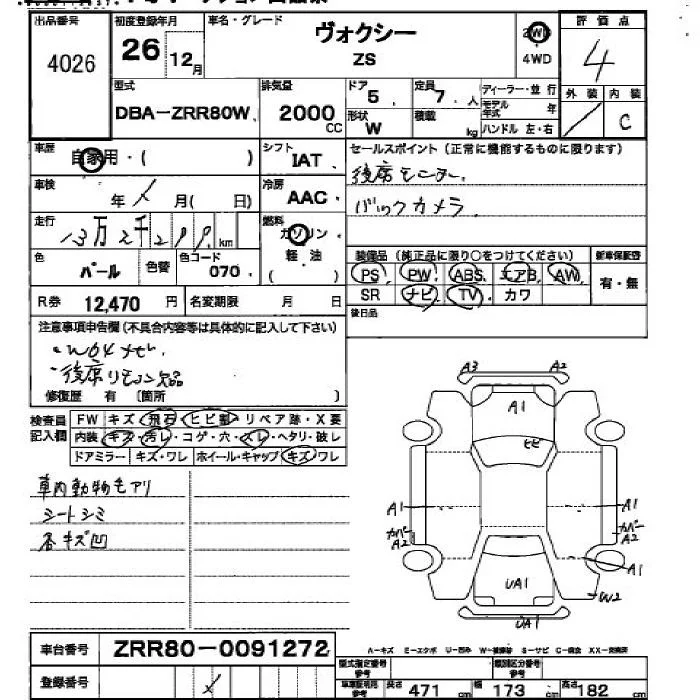 出品番号 初度登録年月 車名・グレード 評価点
4026 26 12月 ヴォクシー 2WD 4
ZS 4WD
型式 排気量 ドア 定員 ディーラー・並行 外装 内装
DBA-ZRR80W 2000CC 5 7人 モデル年式 年 C
形状 W 積載 kg ハンドル 左・右
車歴 自家用・( ) シフト IAT セールスポイント (正常に機能するものに限ります)
後席モニター
車検 年 月(日) 冷房 AAC
バックカメラ
走行 13万2千2 km 燃料 ガソリン 軽油 ( )
色 パール 色替 色コード 070
装備品 (純正品に限り○をつけてください) 新車保証書
PS PW ABS エアB AW 有・無
SR ナビ TV カワ
R券 12,470 円 名変期限 月 日
後日品
注意事項申告欄 (不具合内容等は具体的に記入して下さい)
・後席リモコン欠品
修復歴 有 [箇所 ]
検査員記入欄 FW キズ・飛石・ヒビ割・リペア跡・X要
内装 キズ・汚レ・コゲ・穴・スレ・ヘタリ・破レ
ドアミラー キズ・ワレ ホイール・キャップ キズ・ワレ
車内動物毛アリ
シートシミ
各キズ凹
A3 A2
A1
ヒビ
A1 A1
カバー A2 カバー A2
A1
UA1 W2
UA1
車台番号 ZRR80-0091272
A-キズ E-エクボ U-凹み W-補修跡 S-サビ C-腐食 XX-交換済
登録番号
型式指定番号参考 類別区分番号参考
車車証明用参考 長さ 471 cm 幅 173 cm 高さ 182 cm